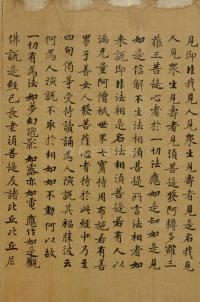 見即非我見人見眾生見壽者見是名我見
人見眾生見壽者見須菩提發阿耨多羅三
藐三菩提心者於一切法應如是知如是見
如是信解不生法相須菩提所言法相者如
來說即非法相是名法相須菩提若有人以
滿无量阿僧祇世界七寶持用布施若有善
男子善女人發菩薩心者持於此經乃至
四句偈等受持讀誦為人演說其福勝彼云
何為人演說不取於相如如不動何以故
一切有為法如夢幻泡影如露亦如電應作如是觀
佛說是經已長老須菩提及諸比丘比丘尼